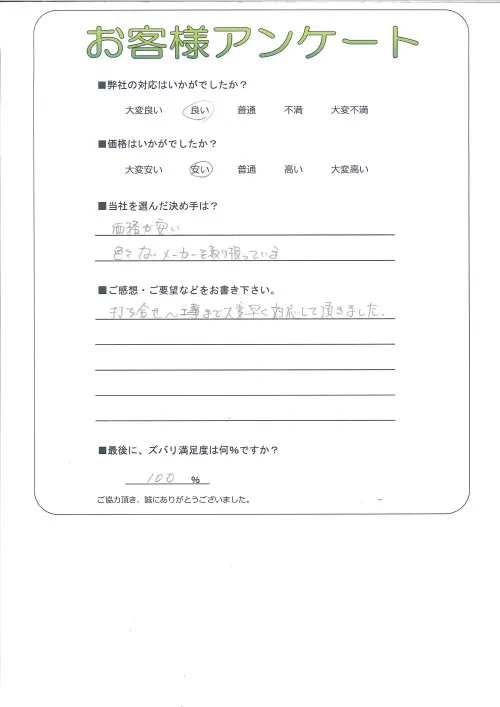 お客様アンケート
■弊社の対応はいかがでしたか？
大変良い 良い 普通 不満 大変不満
■価格はいかがでしたか？
大変安い 安い 普通 高い 大変高い
■当社を選んだ決め手は？
価格が安い
色々なメーカーを取り扱っている
■ご感想・ご要望などをお書き下さい。
打ち合せ〜工事まで大変早く対応して頂きました。
■最後に、ズバリ満足度は何%ですか？
100 %
ご協力頂き、誠にありがとうございました。